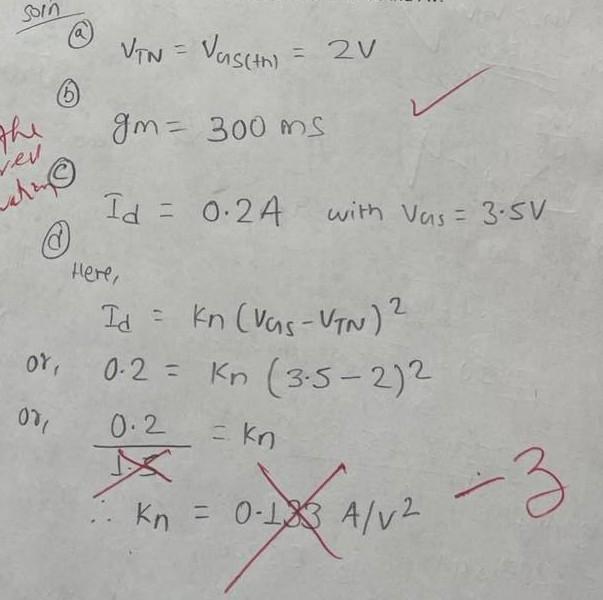 soln
(a)
VTN = VGS(th) = 2V
(b)
gm = 300 ms
the
(c)
Id = 0.2A with VGS = 3.5V
(d)
Here,
Id = Kn (VGS - VTN)²
or, 0.2 = Kn (3.5 - 2)²
or, 0.2 / 1.5 = Kn
∴ Kn = 0.133 A/V²
-3